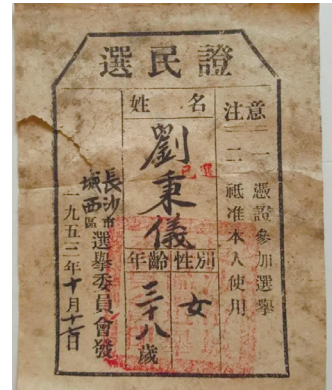 選民證
注意
一 憑證參加選舉
二 祗准本人使用
姓名
劉秉儀
已選
性別
女
年齡
三十八歲
長沙市
城西區
選舉委員會發
一九五三年十月十七日